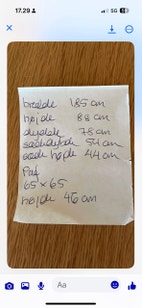 17.29
5G
bredde 185 cm
højde 88 cm
dybde 78 cm
siddedybde 54 cm
sidde højde 44 cm
Puf
65 x 65
højde 46 cm
Aa